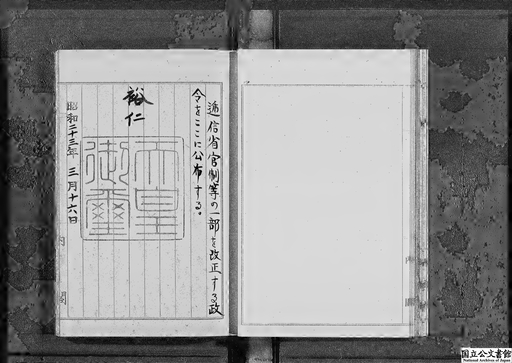 逓信省官制等の一部を改正する政
令をここに公布する。
裕仁
天皇
御璽
昭和二十三年三月十六日
内閣
内閣
国立公文書館
National Archives of Japan